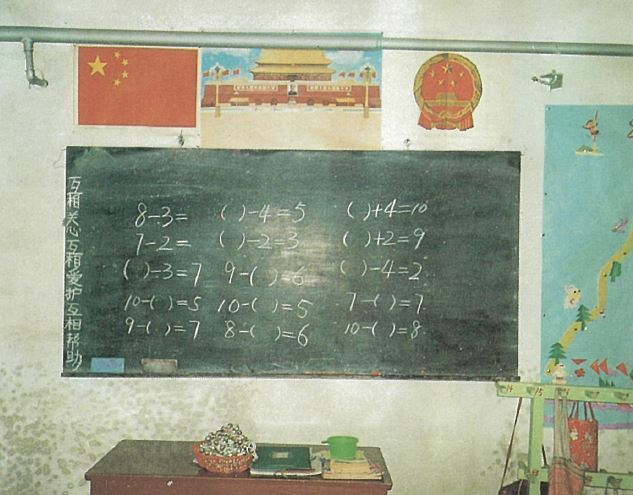 互相关心互相爱护互相帮助
8-3= ( )-4=5 ( )+4=10
7-2= ( )-2=3 ( )+2=9
( )-3=7 9-( )=6 ( )-4=2
10-( )=5 10-( )=5 7-( )=7
9-( )=7 8-( )=6 10-( )=8